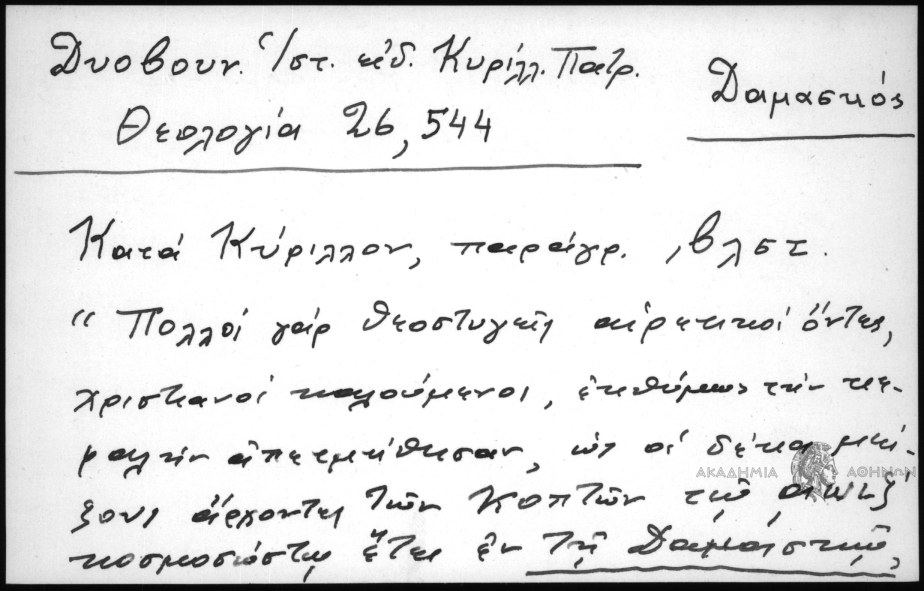 Δυοβουν. ἱστ. εἰδ. Κυρίλλ. Πατρ.
Δαμασκός
Θεολογία 26, 544
Κατά Κύριλλον, παράγρ. ͵βλστ.
“Πολλοί γάρ θεοστυγεῖς αἱρετικοί ὄντες,
χριστιανοί καλούμενοι, ἐκθύμως τήν κε-
φαλήν ἀπετμήθησαν, ὡς οἱ δέκα μεί-
ΑΚΑΔΗΜΙΑ ΑΘΗΝΩΝ
ζονες ἄρχοντες τῶν Κοπτῶν τῷ
κοσμοσώστῳ ἔτει ἐν τῇ Δαμασκῷ,